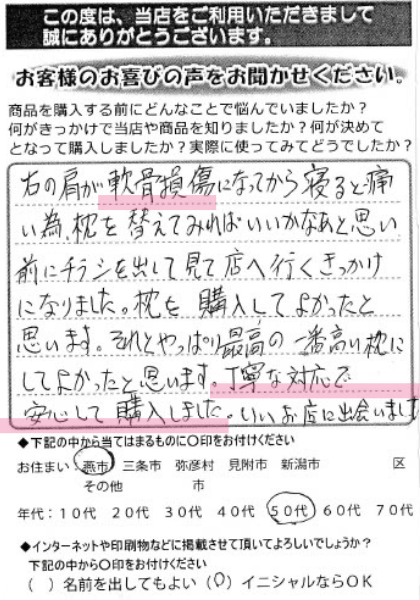 この度は、当店をご利用いただきまして
誠にありがとうございます。
お客様のお喜びの声をお聞かせください。
商品を購入する前にどんなことで悩んでいましたか？
何がきっかけで当店や商品を知りましたか？何が決めて
となって購入しましたか？実際に使ってみてどうでしたか？
右の肩が軟骨損傷になってから寝ると痛
い為、枕を替えてみればいいかなあと思い
前にチラシを出して見て店へ行くきっかけ
になりました。枕を購入してよかったと
思います。それとやっぱり最高の一番高い枕に
してよかったと思います。丁寧な対応で
安心して購入しました。いいお店に出会いまし
◆下記の中から当てはまるものに○印をお付けください
お住まい 燕市 三条市 弥彦村 見附市 新潟市 区
その他 市
年代：１０代 ２０代 ３０代 ４０代 ５０代 ６０代 ７０代
◆インターネットや印刷物などに掲載させて頂いてよろしいでしょうか？
下記の中から○印をお付けください
（ ）名前を出してもよい（○）イニシャルならＯＫ